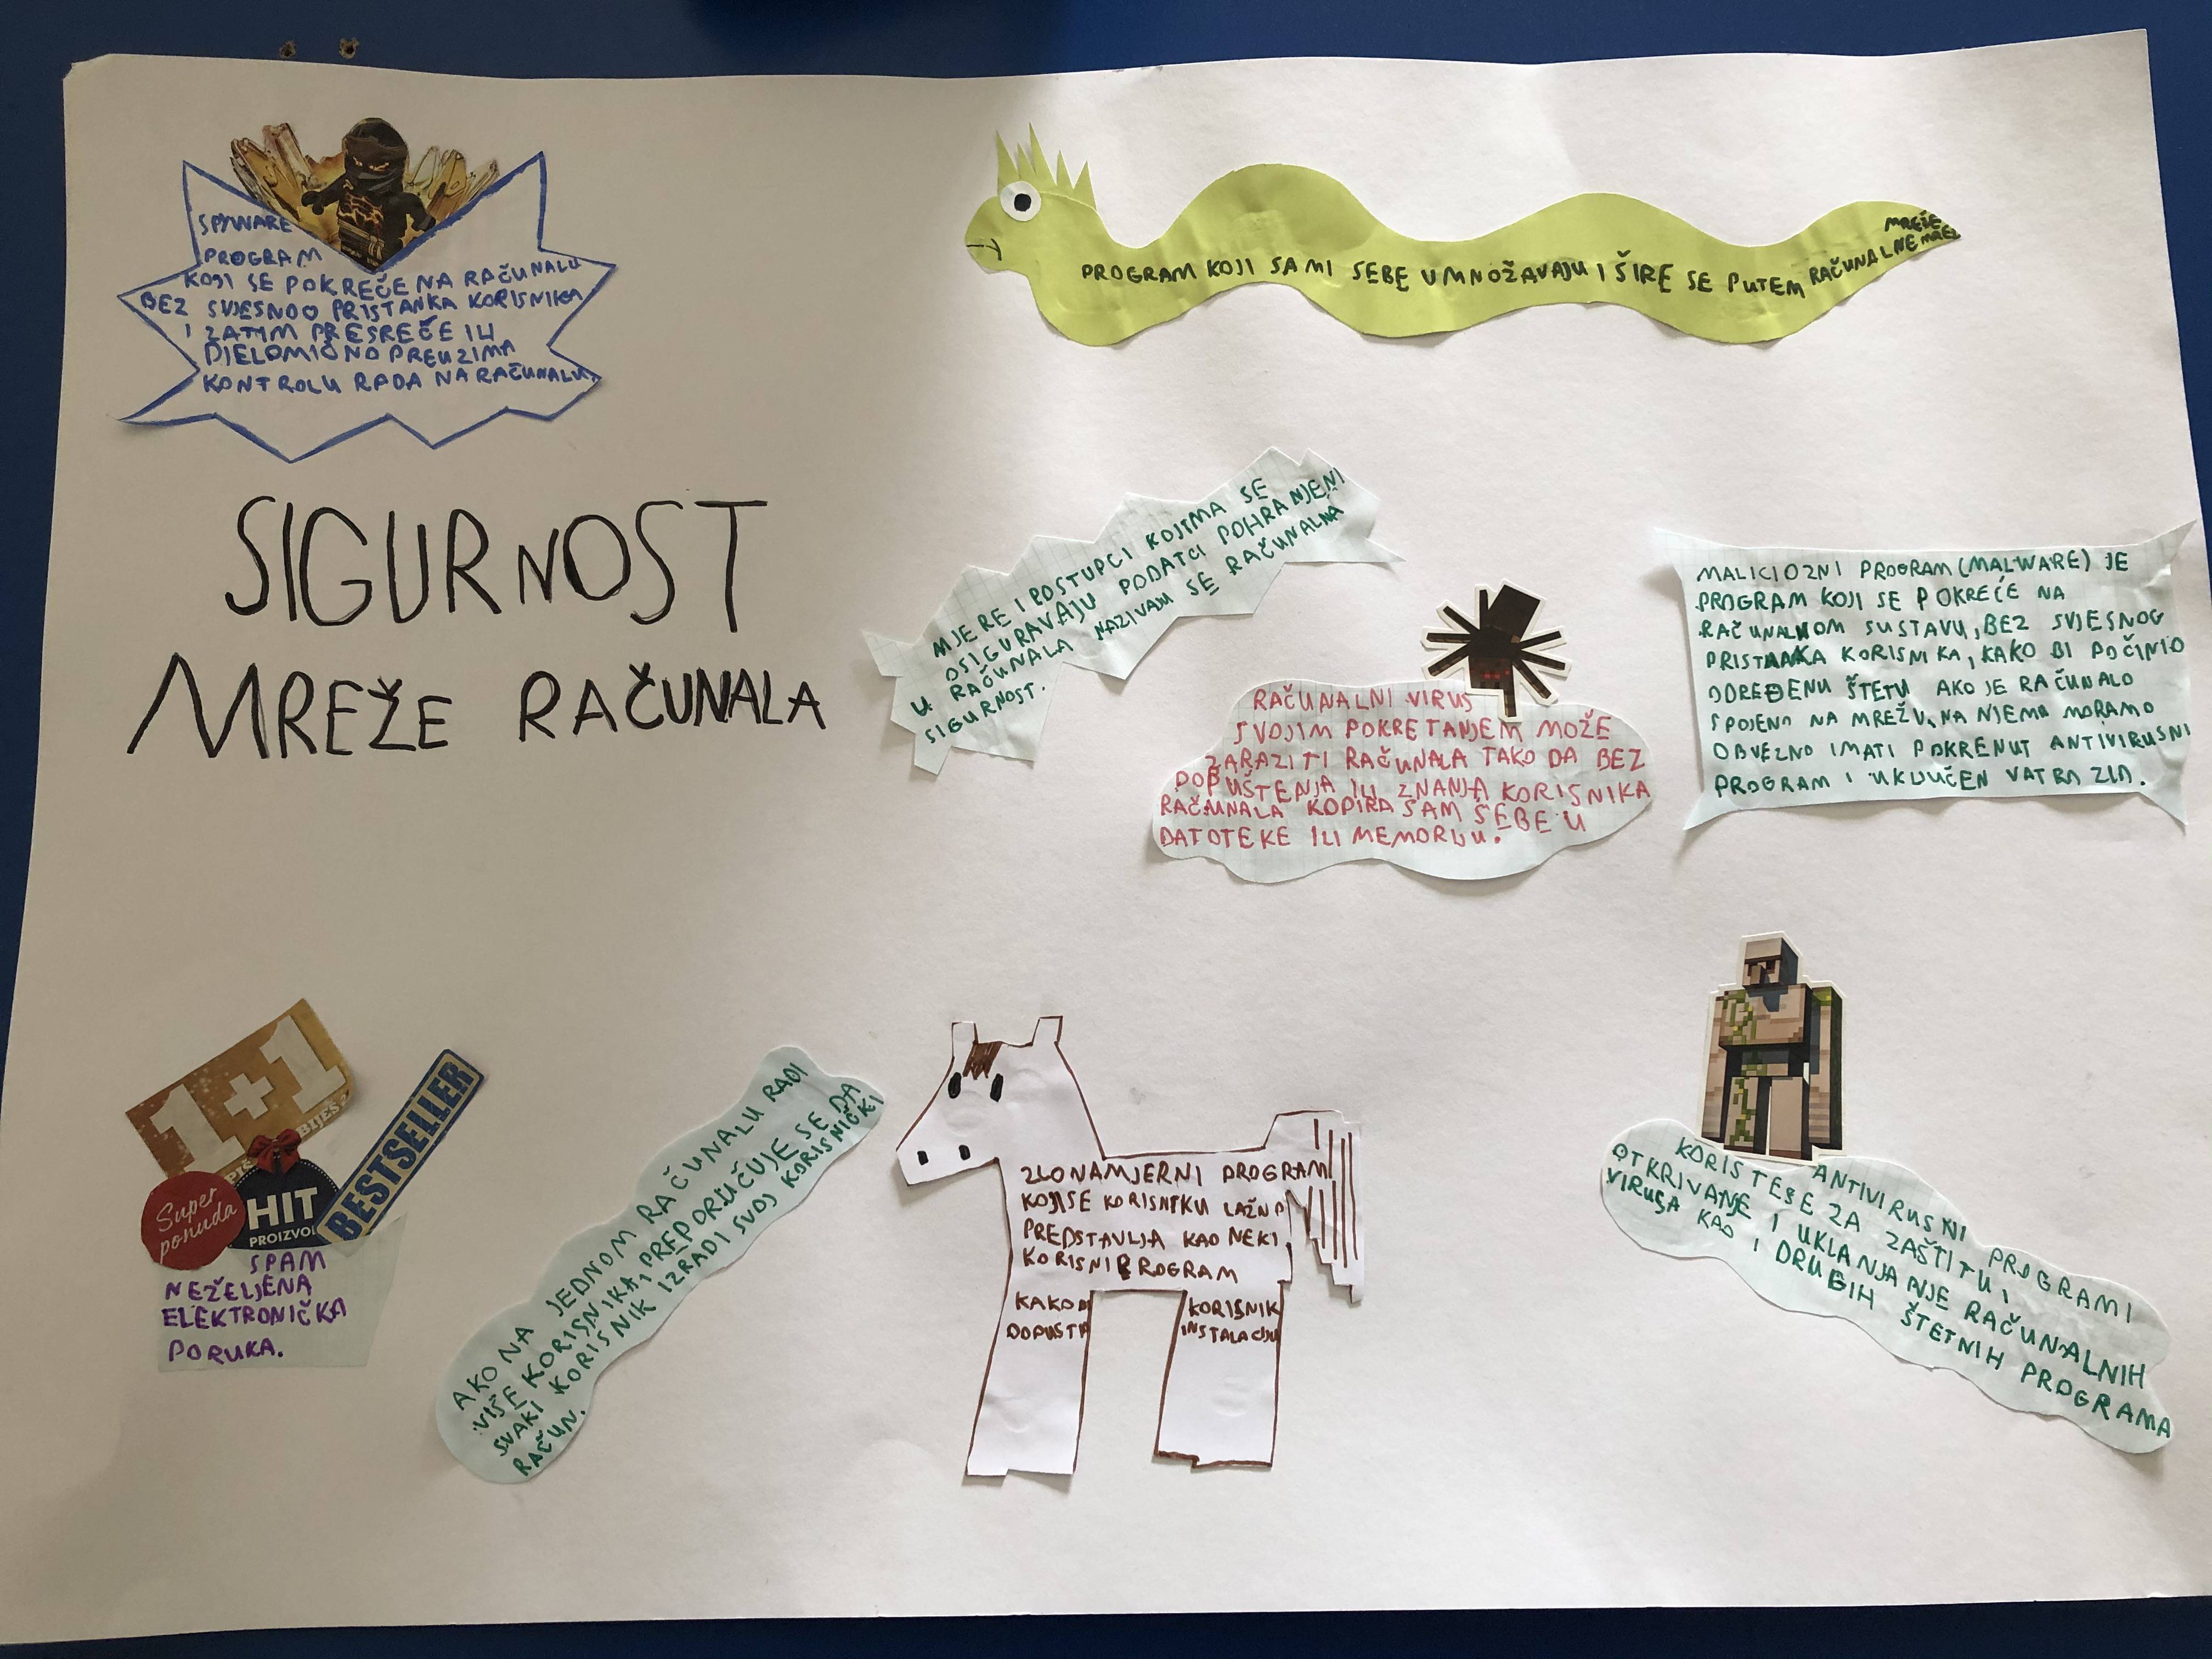 SPYWARE
PROGRAM
KOJI SE POKREĆE NA RAČUNALU
BEZ SVJESNOG PRISTANKA KORISNIKA
I ZATIM PRESREĆE ILI
DJELOMIČNO PREUZIMA
KONTROLU RADA NA RAČUNALU.
PROGRAM KOJI SAMI SEBE UMNOŽAVAJU I ŠIRE SE PUTEM RAČUNALNE
MREŽE
SIGURNOST
MREŽE RAČUNALA
MJERE I POSTUPCI KOJIMA SE
OSIGURAVAJU PODATCI POHRANJENI
U RAČUNALA NAZIVAJU SE RAČUNALNA
SIGURNOST.
RAČUNALNI VIRUS
SVOJIM POKRETANJEM MOŽE
ZARAZITI RAČUNALA TAKO DA BEZ
DOPUŠTENJA ILI ZNANJA KORISNIKA
RAČUNALA KOPIRA SAM SEBE U
DATOTEKE ILI MEMORIJU.
MALICIOZNI PROGRAM (MALWARE) JE
PROGRAM KOJI SE POKREĆE NA
RAČUNALNOM SUSTAVU, BEZ SVJESNOG
PRISTANKA KORISNIKA, KAKO BI POČINIO
ODREĐENU ŠTETU AKO JE RAČUNALO
SPOJENO NA MREŽU, NA NJEMU MORAMO
OBVEZNO IMATI POKRENUT ANTIVIRUSNI
PROGRAM I UKLJUČEN VATROZID.
1+1
Super
ponuda
HIT
PROIZVOD
BESTSELLER
SPAM
NEŽELJENA
ELEKTRONIČKA
PORUKA.
AKO NA JEDNOM RAČUNALU RADI
VIŠE KORISNIKA, PREPORUČUJE SE DA
SVAKI KORISNIK IZRADI SVOJ KORISNIČKI
RAČUN.
ZLONAMJERNI PROGRAM
KOJI SE KORISNIKU LAŽNO
PREDSTAVLJA KAO NEKI
KORISNI PROGRAM
KAKO BI KORISNIK
DOPUSTIO INSTALACIJU
KORISTE SE ANTIVIRUSNI PROGRAMI
ZA ZAŠTITU,
OTKRIVANJE I UKLANJANJE RAČUNALNIH
VIRUSA KAO I DRUGIH ŠTETNIH PROGRAMA